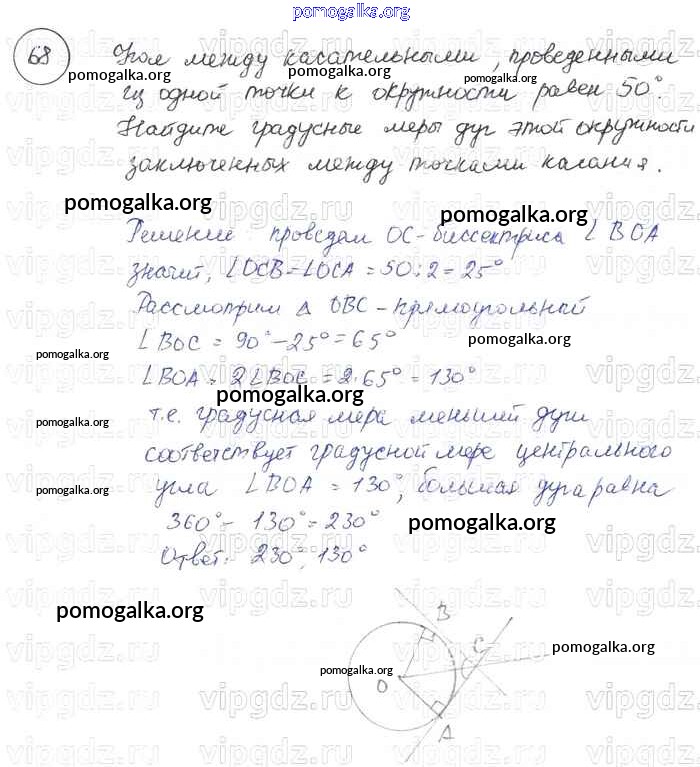 pomogalka.org
68 Угол между касательными, проведенными
pomogalka.org pomogalka.org
из одной точки к окружности равен 50°.
pomogalka.org
Найдите градусные меры дуг этой окружности
заключенных между точками касания.
pomogalka.org pomogalka.org
Решение проведем OC-биссектриса ∠BOA
значит, ∠OCB=∠OCA=50:2=25°
Рассмотрим △OBC-прямоугольный
∠BOC=90°-25°=65°
pomogalka.org pomogalka.org
∠BOA=2∠BOC=2·65°=130°
pomogalka.org
т.е. градусная мера меньшей дуги
pomogalka.org pomogalka.org
соответствует градусной мере центрального
угла ∠BOA=130°, большая дуга равна
pomogalka.org pomogalka.org
360°-130°=230°
pomogalka.org
Ответ: 230°, 130°
pomogalka.org pomogalka.org
pomogalka.org
B
C
pomogalka.org
pomogalka.org
O
A
vipgdz.ru